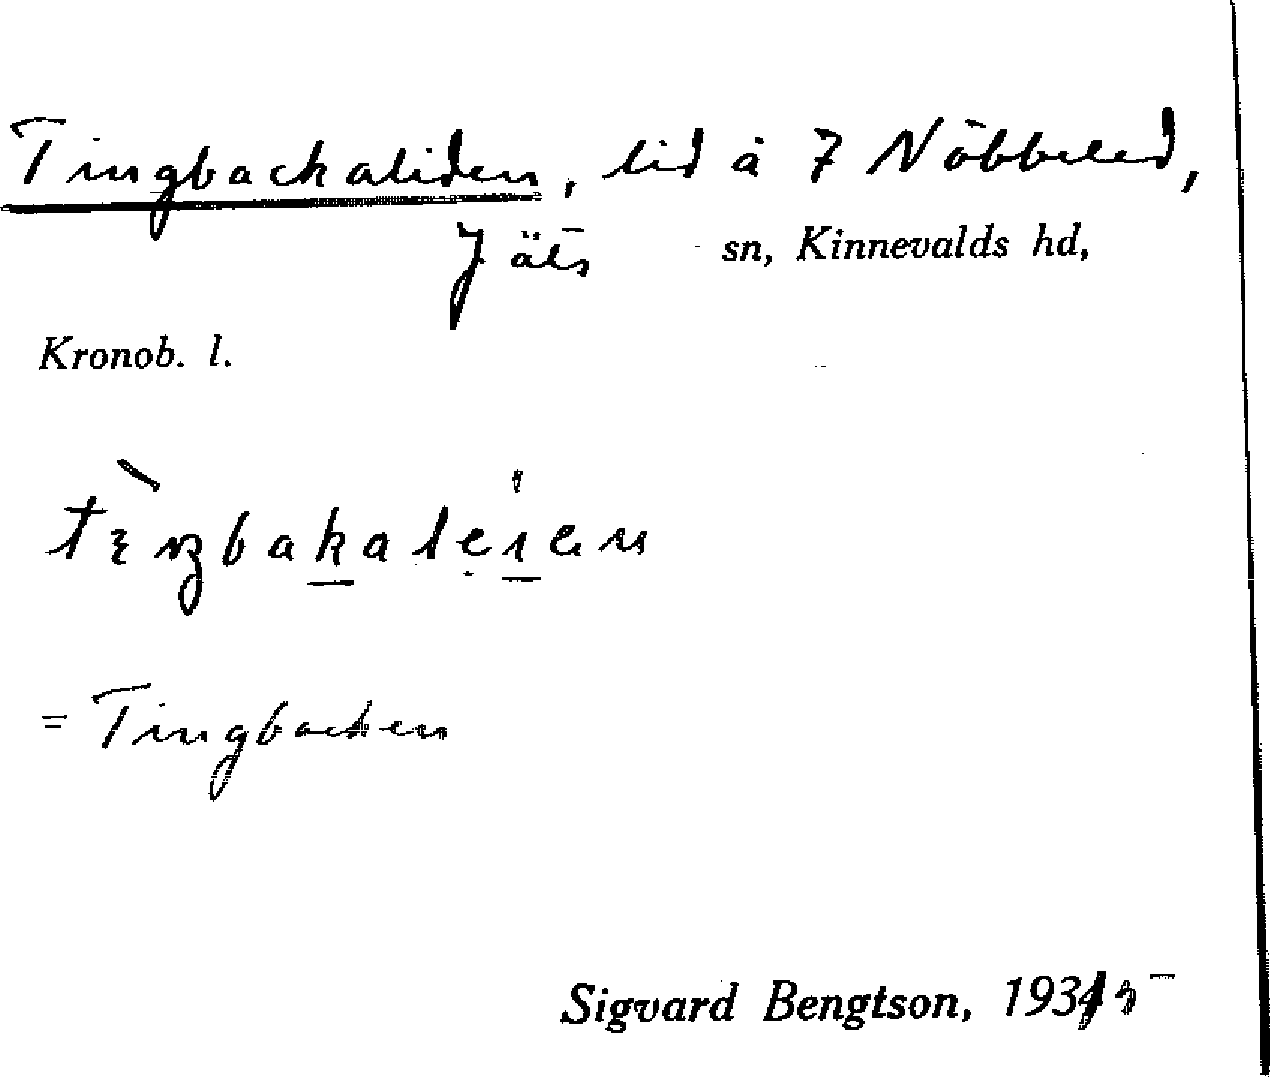 Tingbackaliden, lid å 7 Nöbbeled,
Jäts sn, Kinnevalds hd,
Kronob. l.
= Tingbacken
Sigvard Bengtson, 1935